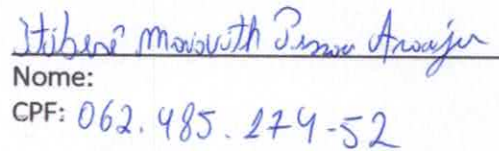 Itiberê Pessoa Araujo
Nome:
CPF: 062.485.274-52